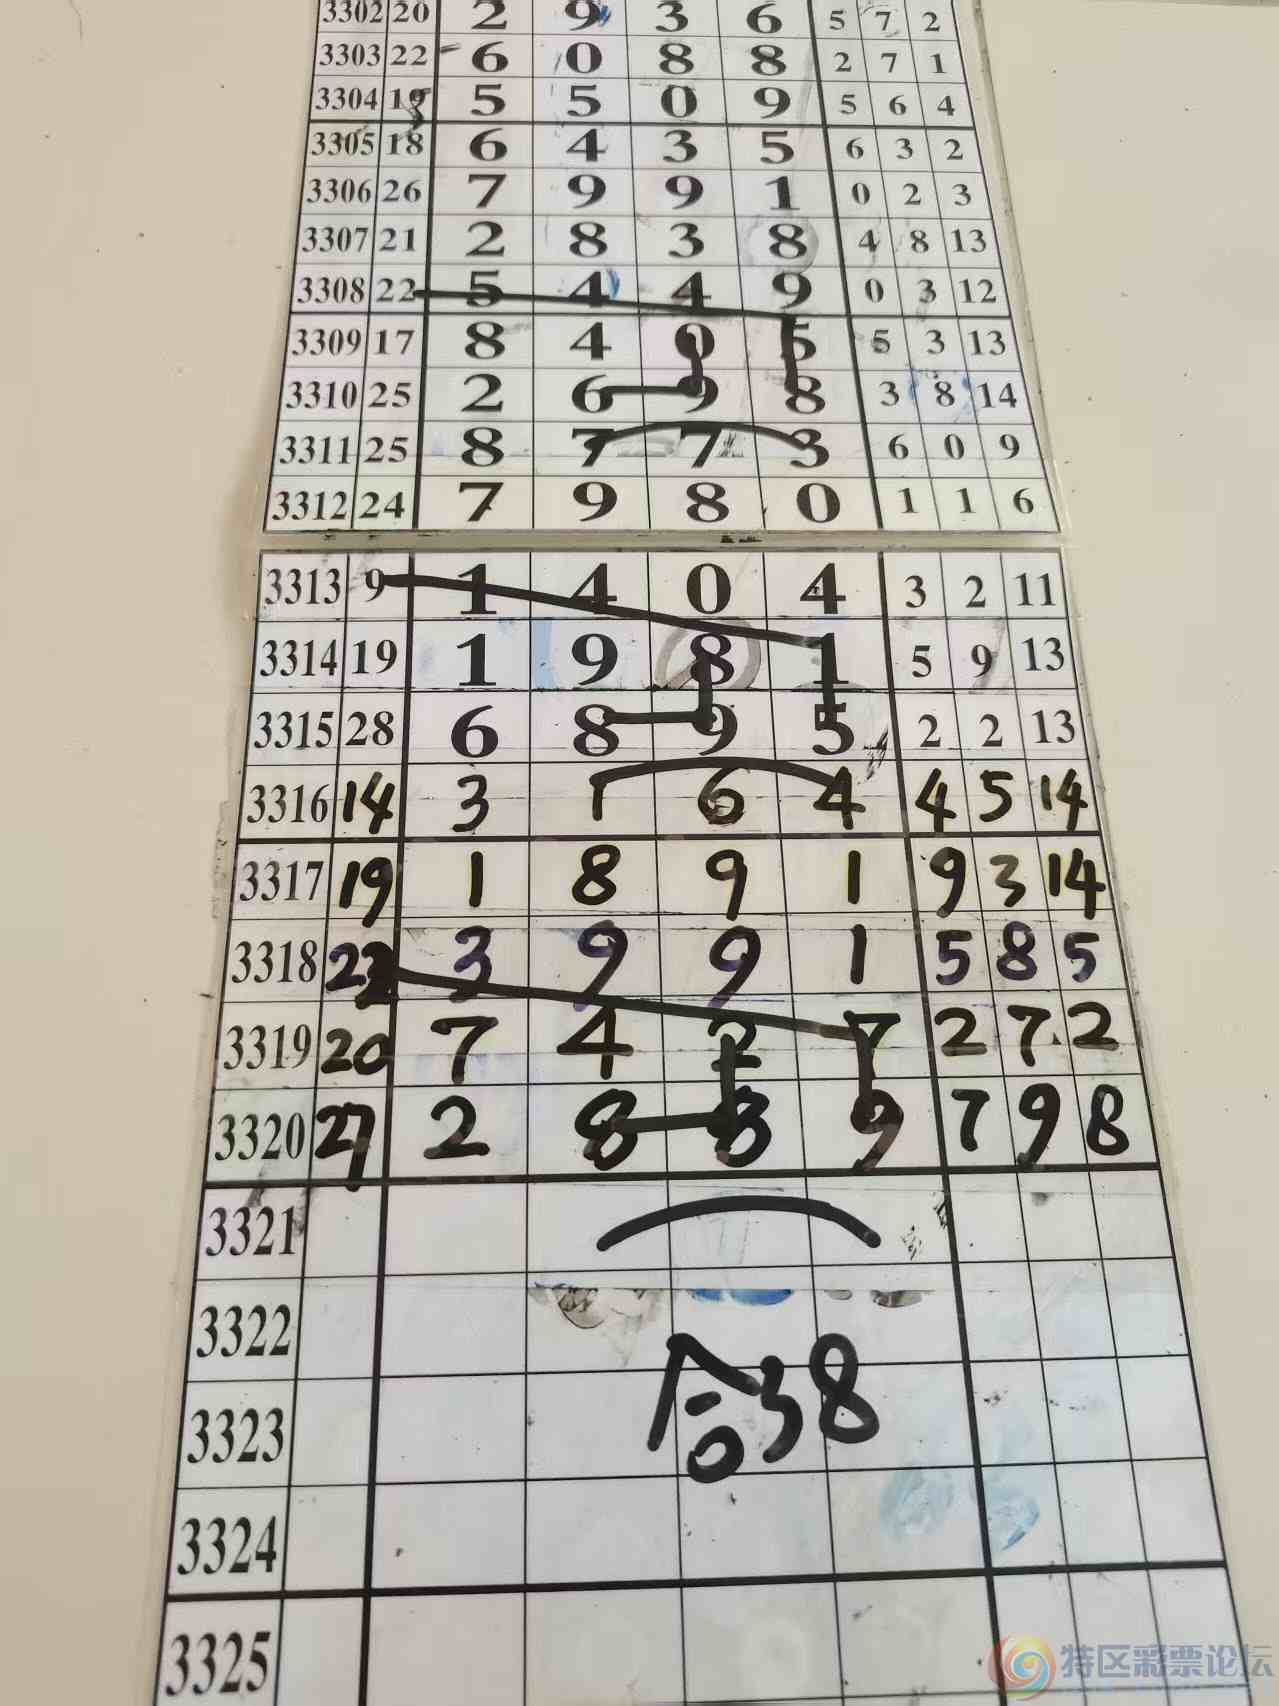 3302 20 2 9 3 6 5 7 2
3303 22 6 0 8 8 2 7 1
3304 19 5 5 0 9 5 6 4
3305 18 6 4 3 5 6 3 2
3306 26 7 9 9 1 0 2 3
3307 21 2 8 3 8 4 8 13
3308 22 5 4 4 9 0 3 12
3309 17 8 4 0 5 5 3 13
3310 25 2 6 9 8 3 8 14
3311 25 8 7 7 3 6 0 9
3312 24 7 9 8 0 1 1 6
3313 9 1 4 0 4 3 2 11
3314 19 1 9 8 1 5 9 13
3315 28 6 8 9 5 2 2 13
3316 14 3 1 6 4 4 5 14
3317 19 1 8 9 1 9 3 14
3318 22 3 9 9 1 5 8 5
3319 20 7 4 2 7 2 7 2
3320 27 2 8 8 9 7 9 8
3321
3322
合38
3323
3324
3325
特区彩票论坛